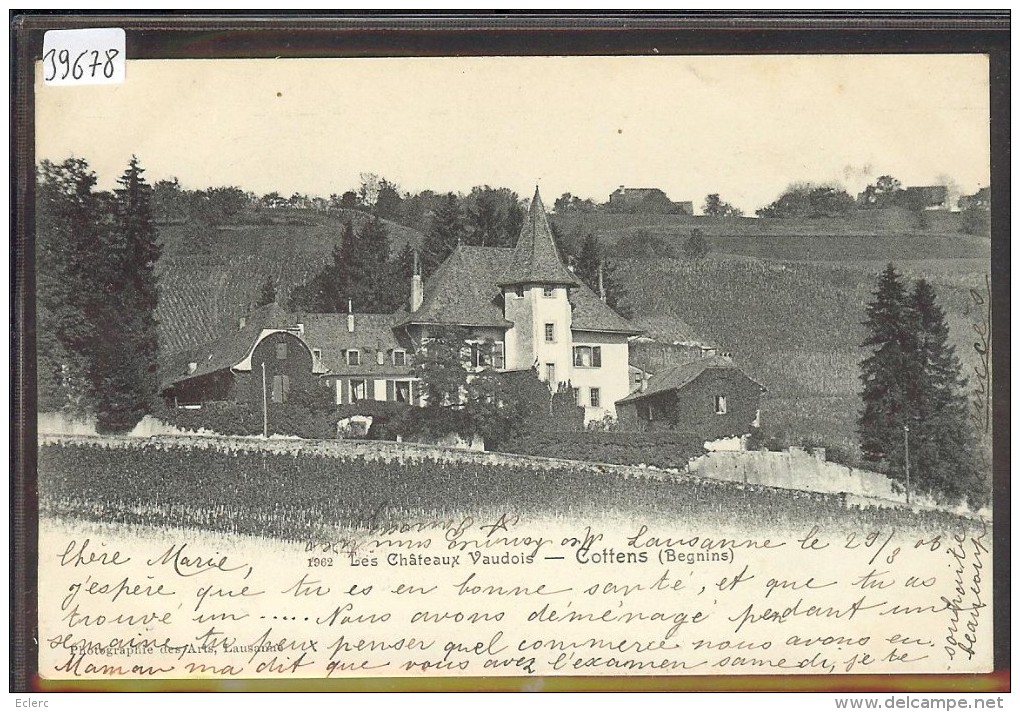 39678
Lausanne le 29/3 06
1962 Les Châteaux Vaudois — Cottens (Begnins)
Chère Marie,
j'espère que tu es en bonne santé, et que tu as
trouvé un ..... Nous avons déménagé pendant un
semaine, tu peux penser quel commerce nous avons eu.
Photographie des Arts, Lausanne
Maman m'a dit que vous avez l'examen samedi, je te
souhaite
beaucoup
Eclerc
www.delcampe.net